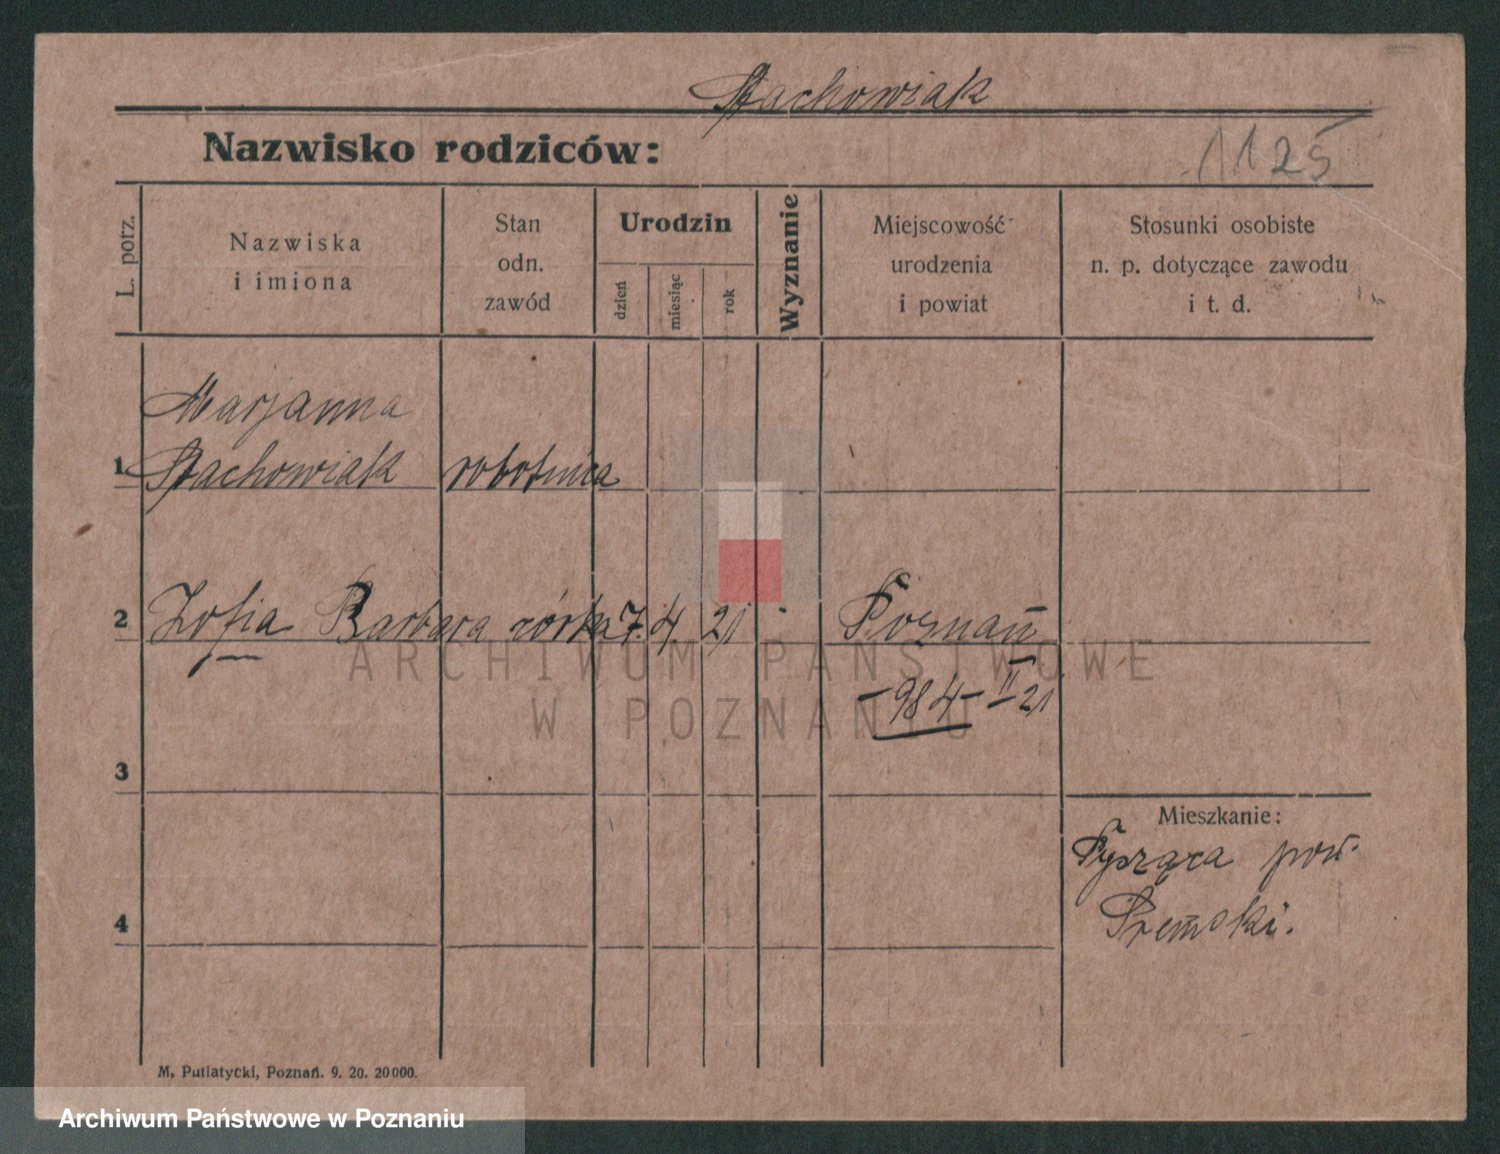 Stachowiak
Nazwisko rodziców:
1125
L. porz.
Nazwiska
i imiona
Stan
odn.
zawód
Urodzin
dzień
miesiąc
rok
Wyznanie
Miejscowość
urodzenia
i powiat
Stosunki osobiste
n. p. dotyczące zawodu
i t. d.
Marjanna
1 Stachowiak robotnica
2 Zofia Barbara córka 7. 4. 21 Poznań
ARCHIWUM PAŃSTWOWE
W POZNANIU
-984- II 21
3
Mieszkanie:
Pysząca pow.
4
Śremski.
M. Putiatycki, Poznań. 9. 20. 20000.
Archiwum Państwowe w Poznaniu